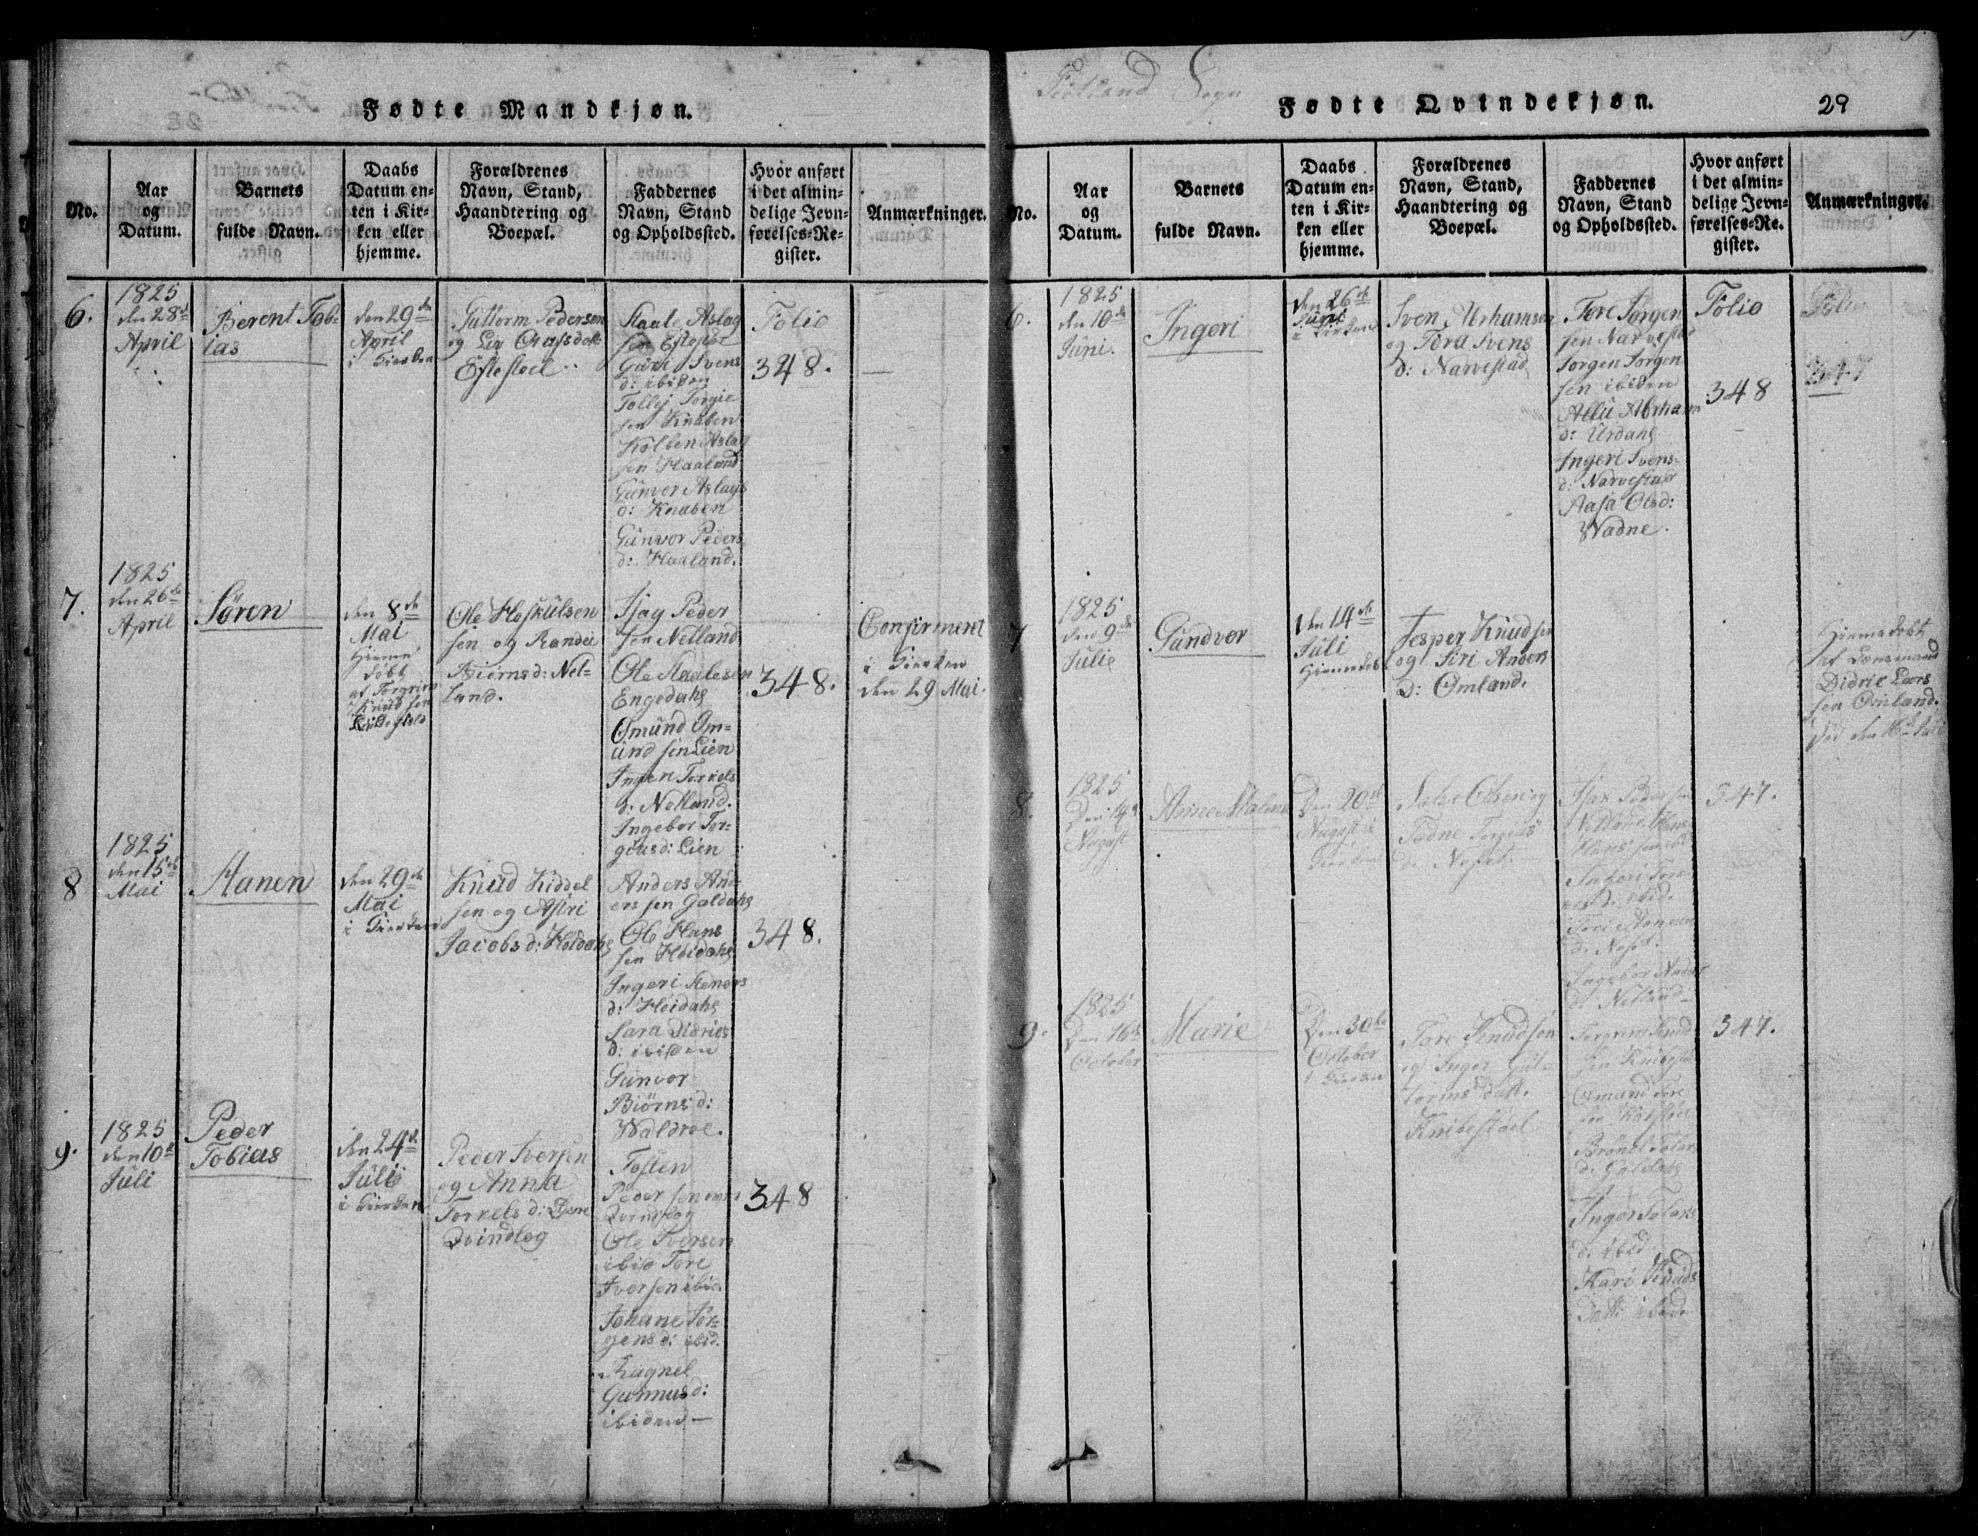 Fødte Mandkjøn.
No.
Aar
og
Datum.
Barnets
fulde Navn.
Daabs
Datum en-
ten i Kir-
ken eller
hjemme.
Forældrenes
Navn, Stand,
Haandtering og
Boepæl.
Faddernes
Navn, Stand
og Opholdssted.
Hvor anført
i det almin-
delige Jevn-
førelses-Re-
gister.
Anmærkninger.
6.
1825
den 28d
April
Berent Tob-
ias
den 29de
April
i Kierken
Guttorm Pedersen
og Liv Olafsdatt
Eftestoel
Staale Aslag
sen Eftestøl
Guri Svens
d: ibiden
Tollef Torgie
sen Knaben
Kolben Aslag
sen Haaland
Gunvor Aslags
d: Knaben
Gunvor Peders
d: Haaland.
Folio
348.
7.
1825
den 26de
April
Søren
den 8de
Mai
Hieme
Døbt
af Torgrim
Knudsen
Ole Høskulsen
sen og Randei
Biørnsd: Net-
land.
Isag Peder
sen Netland
Ole Staalesen
Engedahl
Osmund Om-
und sen Lien
Inger Torkels
d: Netland.
Ingebor Tor-
giusd: Lien
348.
Confirmert
i Kierken
den 29 Mai.
8
1825
den 15de
Mai
Hanen
den 29de
Mai
i Kierken
Knud Kiddel
sen og Astri
Jacobs d: Høidahl
Anders And-
ers sen Galdahl
Ole Hans
sen Høidahl
Ingeri Steners
d: Høidahl
Sara Didrics
d: ibiden
Gunvor
Biørns d:
Waldroe.
348.
9.
1825
den 10d
Juli
Peder
Tobias
den 24d
Juli
i Kierken
Peder Iversen
og Anna
Torkels d:
Qvindlog
Tosten
Peder sen
Qvindlog
Ole Iversen
ibid Tore
Iversen ibid
Johane Jør-
gens d: ibid.
Ragnel
Gunnus d:
ibiden
348
Fiitland Sogn
Fødte Qvindekjøn.
29
No.
Aar
og
Datum.
Barnets
fulde Navn.
Daabs
Datum en-
ten i Kir-
ken eller
hjemme.
Forældrenes
Navn, Stand,
Haandtering og
Boepæl.
Faddernes
Navn, Stand
og Opholdssted.
Hvor anført
i det almin-
delige Jevn-
førelses-Re-
gister.
Anmærkninger.
6.
1825
den 10de
Juni.
Ingeri
den 26de
Juni
i Kierken
Sven Abrhamsen
og Tora Svens
d: Narvestad
Tore Jørgen
sen Narvestad
Jørgen Jørgen
sen ibiden
Allu Abrham
d: Urdahl
Ingeri Svens-
d: Narvestad
Aasa Olsd:
Wadne.
Folio
348
Folio
347
7
1825
den 9de
Julie
Gundvor
den 14de
Juli
Hiemedøb
Jesper Knudsen
og Siri Anders
D: Omland.
Hiemedøbt
af Lensmand
Didric Lars
sen Omland.
Død den 16de Juli
8.
1825
Den 14d
August
Anne Malene
Den 20de
August i
Kierken
Salve Olsen og
Tadne Torgius
d: Neset.
Isak Peder sen
Netland Hans
Hans sen ibd
d: ibid.
d: Neset.
Ingebor
d: Netland
347.
9.
1825
Den 16de
October
Marie
Den 30te
October
i Kierken
Tore Knudsen
og Inger Gut-
torms datt.
Knibestøel
Torgrim Knud
sen Knibestøl
Osmand Tore
sen
d: Galdahl
Inger
d: ibid
Kari Knuds
Datt: ibid
347.